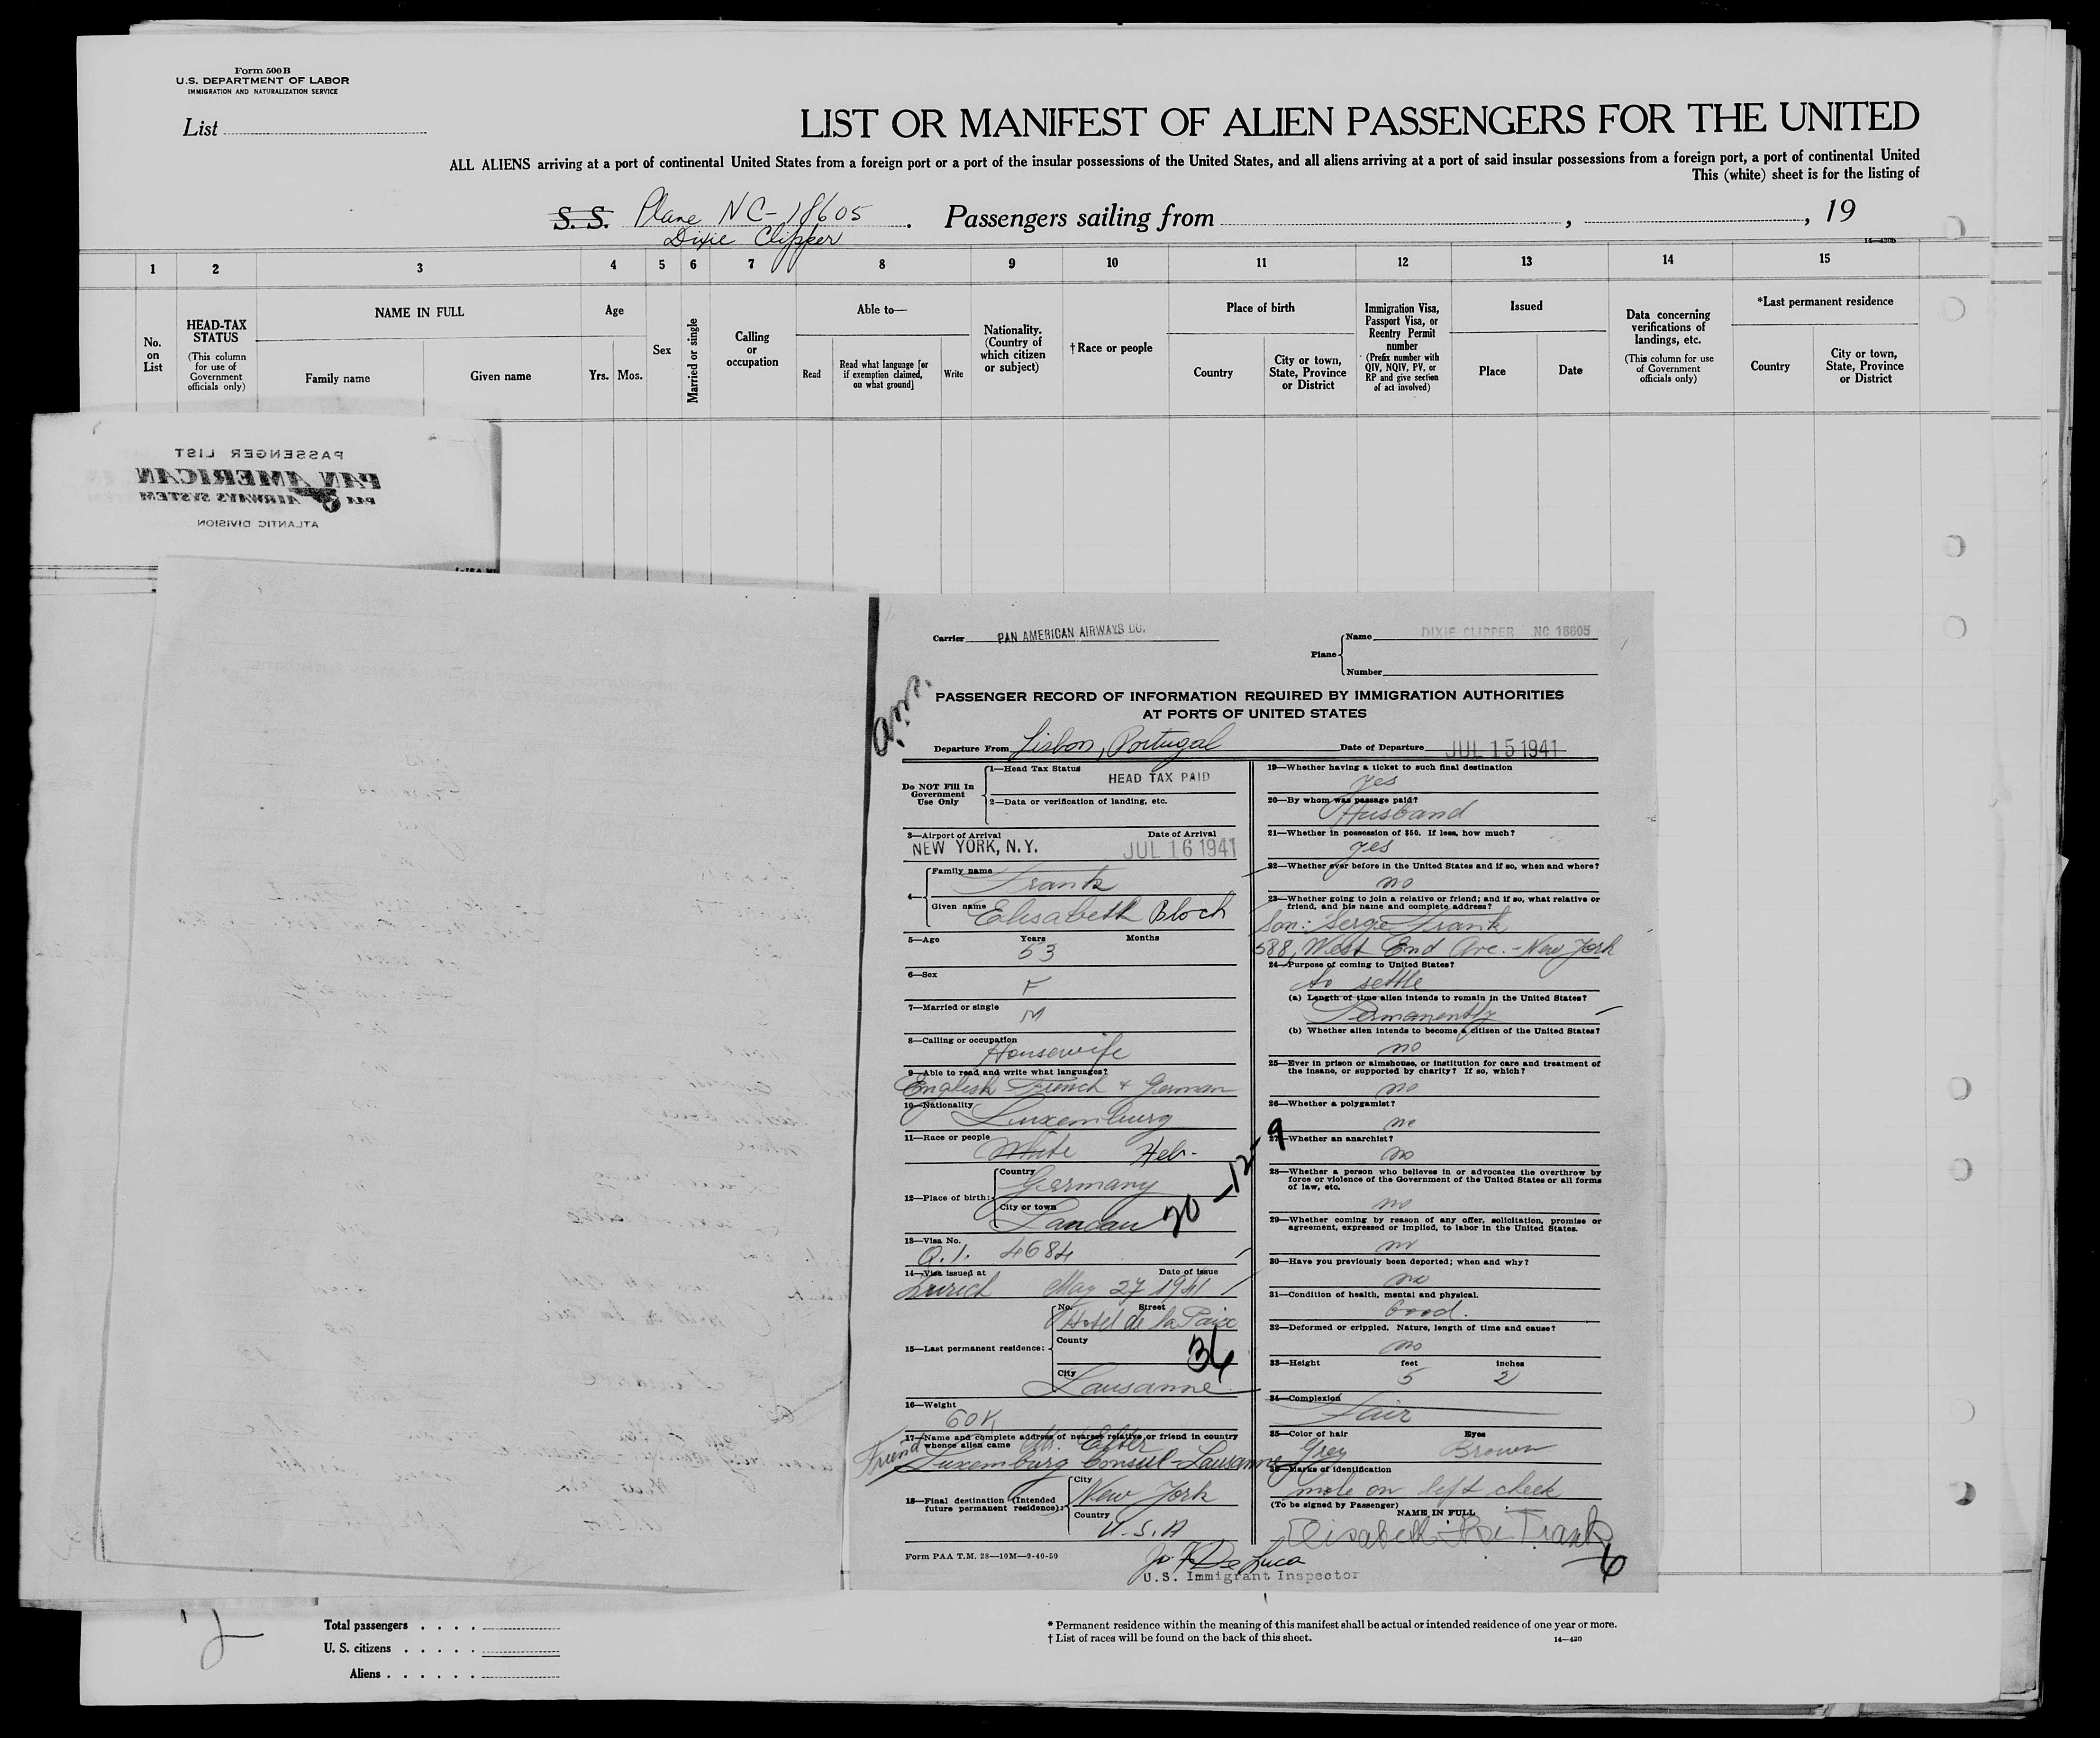 Form 500 B
U.S. DEPARTMENT OF LABOR
IMMIGRATION AND NATURALIZATION SERVICE
List
LIST OR MANIFEST OF ALIEN PASSENGERS FOR THE UNITED
ALL ALIENS arriving at a port of continental United States from a foreign port or a port of the insular possessions of the United States, and all aliens arriving at a port of said insular possessions from a foreign port, a port of continental United
This (white) sheet is for the listing of
S. S. Plane NC-18605. Passengers sailing from , , 19
Dixie Clipper
14—430b
1 2 3 4 5 6 7 8 9 10 11 12 13 14 15
No. on List
HEAD-TAX STATUS
(This column for use of Government officials only)
NAME IN FULL
Family name Given name
Age
Yrs. Mos.
Sex
Married or single
Calling or occupation
Able to—
Read
Read what language [or if exemption claimed, on what ground]
Write
Nationality. (Country of which citizen or subject)
†Race or people
Place of birth
Country
City or town, State, Province or District
Immigration Visa, Passport Visa, or Reentry Permit number
(Prefix number with QIV, NQIV, PV, or RP and give section of act involved)
Issued
Place Date
Data concerning verifications of landings, etc.
(This column for use of Government officials only)
*Last permanent residence
Country
City or town, State, Province or District
PASSENGER LIST
PAN AMERICAN
PAA AIRWAYS SYSTEM
ATLANTIC DIVISION
Carrier PAN AMERICAN AIRWAYS CO.
Plane Name DIXIE CLIPPER NC 18605
Number
PASSENGER RECORD OF INFORMATION REQUIRED BY IMMIGRATION AUTHORITIES
AT PORTS OF UNITED STATES
Departure From Lisbon, Portugal Date of Departure JUL 15 1941
Do NOT Fill In Government Use Only
1—Head Tax Status HEAD TAX PAID
2—Data or verification of landing, etc.
3—Airport of Arrival Date of Arrival
NEW YORK, N.Y. JUL 16 1941
4— Family name Frank
Given name Elisabeth Bloch
5—Age Years Months
53
6—Sex
F
7—Married or single
M
8—Calling or occupation
Housewife
9—Able to read and write what languages?
English French + German
10—Nationality
Luxemburg
11—Race or people
White Heb-
12—Place of birth: Country
Germany
City or town
Landau
20-12-9
13—Visa No.
Q.I. 4684
14—Visa issued at Date of issue
Zurich May 27 1941
15—Last permanent residence: No. Street
Hotel de la Paix
County
36
City
Lausanne
16—Weight
60 K
17—Name and complete address of nearest relative or friend in country whence alien came
Friend
Luxemburg Consul-Lausanne
18—Final destination (Intended future permanent residence): City
New York
Country
U.S.A
Form PAA T.M. 28—10M—9-40-50
19—Whether having a ticket to such final destination
yes
20—By whom was passage paid?
Husband
21—Whether in possession of $50. If less, how much?
yes
22—Whether ever before in the United States and if so, when and where?
no
23—Whether going to join a relative or friend; and if so, what relative or friend, and his name and complete address?
Son: Serge Frank
588, West End Ave. - New York
24—Purpose of coming to United States?
to settle
(a) Length of time alien intends to remain in the United States?
Permanently
(b) Whether alien intends to become a citizen of the United States?
no
25—Ever in prison or almshouse, or institution for care and treatment of the insane, or supported by charity? If so, which?
no
26—Whether a polygamist?
no
27—Whether an anarchist?
no
28—Whether a person who believes in or advocates the overthrow by force or violence of the Government of the United States or all forms of law, etc.
no
29—Whether coming by reason of any offer, solicitation, promise or agreement, expressed or implied, to labor in the United States.
no
30—Have you previously been deported; when and why?
no
31—Condition of health, mental and physical.
Good.
32—Deformed or crippled. Nature, length of time and cause?
no
33—Height feet inches
5 2
34—Complexion
Fair
35—Color of hair Eyes
Grey Brown
36—Marks of identification
mole on left cheek
(To be signed by Passenger)
NAME IN FULL
Elisabeth Frank
6
De Luca
U.S. Immigrant Inspector
Total passengers
U. S. citizens
Aliens
* Permanent residence within the meaning of this manifest shall be actual or intended residence of one year or more.
† List of races will be found on the back of this sheet.
14—420